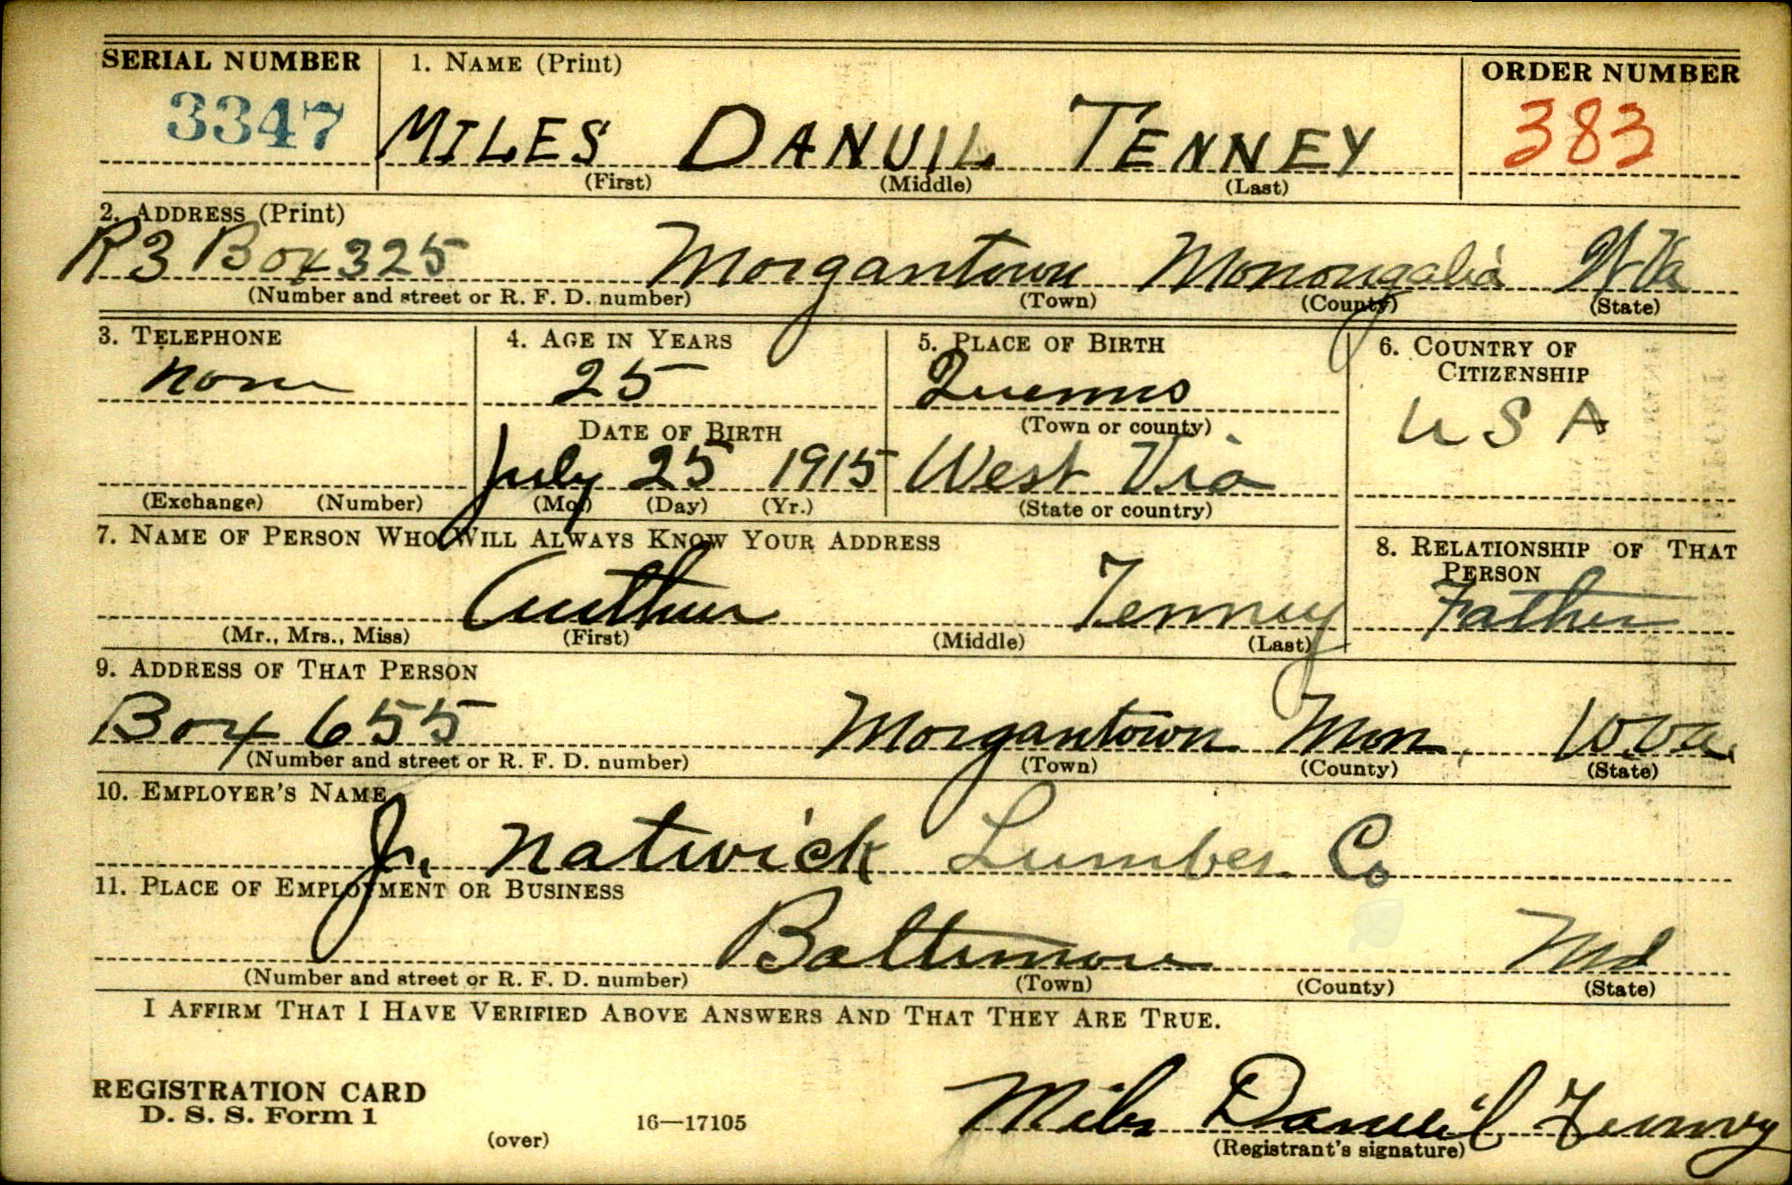 SERIAL NUMBER 1. NAME (Print) ORDER NUMBER
3347 MILES DANUIL TENNEY 383
(First) (Middle) (Last)
2. ADDRESS (Print)
R 3 Box 325 Morgantown Monongalia W Va
(Number and street or R. F. D. number) (Town) (County) (State)
3. TELEPHONE 4. AGE IN YEARS 5. PLACE OF BIRTH 6. COUNTRY OF CITIZENSHIP
none 25 U S A
DATE OF BIRTH (Town or county)
July 25 1915 West Via
(Exchange) (Number) (Mo.) (Day) (Yr.) (State or country)
7. NAME OF PERSON WHO WILL ALWAYS KNOW YOUR ADDRESS 8. RELATIONSHIP OF THAT PERSON
Arthur Tenney Father
(Mr., Mrs., Miss) (First) (Middle) (Last)
9. ADDRESS OF THAT PERSON
Box 655 Morgantown Mon, W.Va.
(Number and street or R. F. D. number) (Town) (County) (State)
10. EMPLOYER'S NAME
J. Natwick Lumber Co
11. PLACE OF EMPLOYMENT OR BUSINESS
Baltimore Md
(Number and street or R. F. D. number) (Town) (County) (State)
I AFFIRM THAT I HAVE VERIFIED ABOVE ANSWERS AND THAT THEY ARE TRUE.
REGISTRATION CARD
D. S. S. Form 1 16—17105 Miles Danuil Tenney
(over) (Registrant's signature)